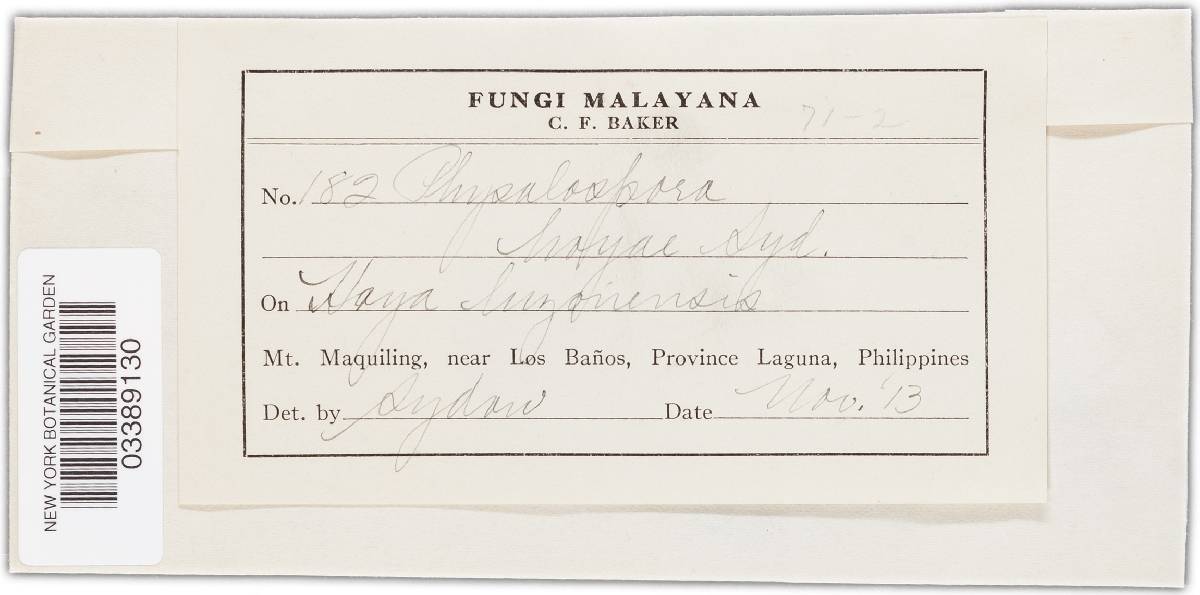 FUNGI MALAYANA
C. F. BAKER
71-2
No. 182 Physalospora
hoyae Syd.
On Hoya luzonensis
Mt. Maquiling, near Los Baños, Province Laguna, Philippines
Det. by Sydow Date Nov. '13
NEW YORK BOTANICAL GARDEN
03389130